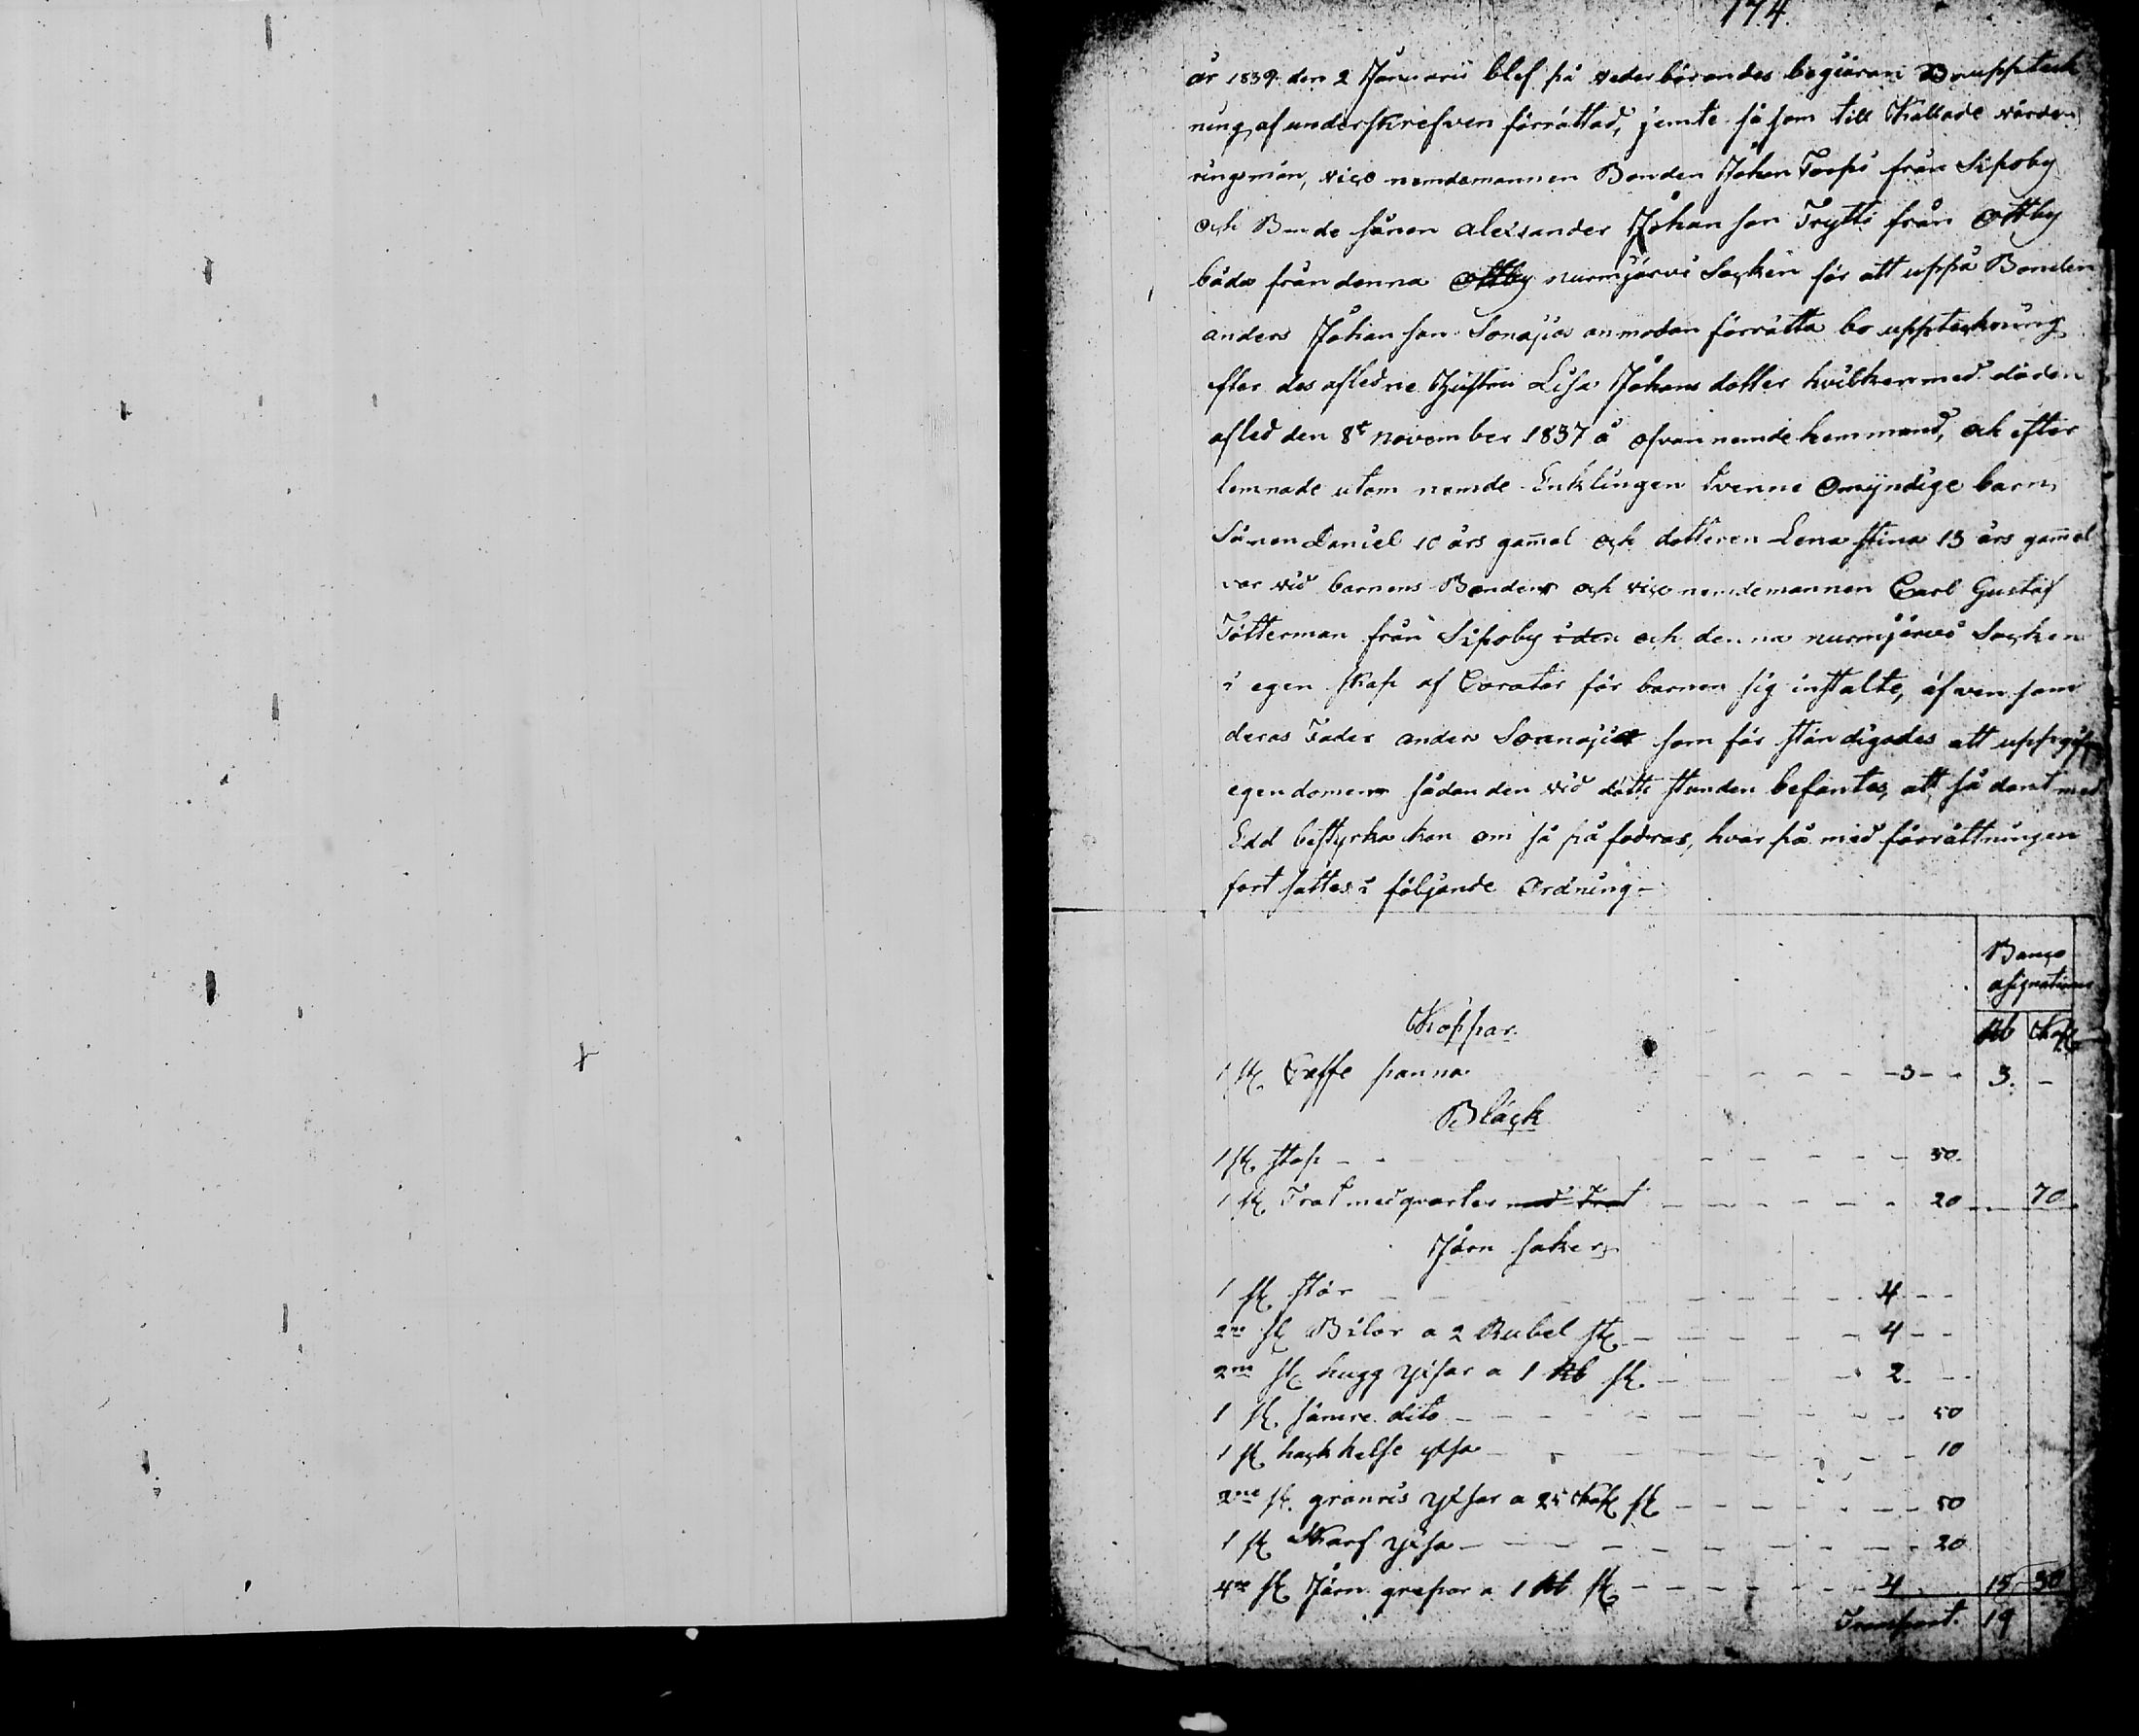 174.
år 1839 den 2 Januarii blef på vederbörandes begiäran Bouppteck
ning, af underskrefven förrättad, jemte så som till Kallade värde
ringsmän, vice nemdemannen Bonden Johan Toopi från Siposby
och Bonde sånen alexsander Johanson Trytti från Ottby
båda från denna Ottby nurmjärvi Socken för att uppå Bonden
anders Johanson Sonaja anmodan förrätta bo uppteckning
efter des afledne Hustru Lisa Johans dotter hvilken med döden
afled den 8e november 1837 å ofvan nemde hemmand, och efter
lemnade utom nemde Enklingen tvenne Omyndige barn,
Sånen Daniel 10 års gam̄al och dotteren Lena stina 13 års gam̄al
var vid barnens Bonden och vice nemdemannen Carl Gustaf
Tötterman från Siposby i den och denna nurmjärvi Socken
i egen skap af Corator för barnen sig instalte, äfven som
deras Fader anders Sonnaja som för ständigades att uppgif
egendomen sådan den vid dötts stunden befantes, att så dant med
Edd bestyrka kan om så på fodras, hvar på med förrättningen
fort sattes i följande Ordning -
Banco
asignationer
Rb Kop
Koppar.
1 st. Caffe panna - 3 - 3. -
Bläck
1 st. stop - 50.
1 st. Trat med qvarter med Trat - 20 - 70
Järn saker
1 st. stör - 4 -
2ne st Bilor a 2 Rubel st - 4 -
2ne st hugg yxsar a 1 Rb st. - 2 -
1 st. sämre dito - 50
1 st hackkelse yxsa - 10
2ne st. granris yxsar a 25 Kop st - 50
1 st Skarf yxsa - 20
4ra st Järn grepar a 1 Rb st - 4 15 30
Transport. 19